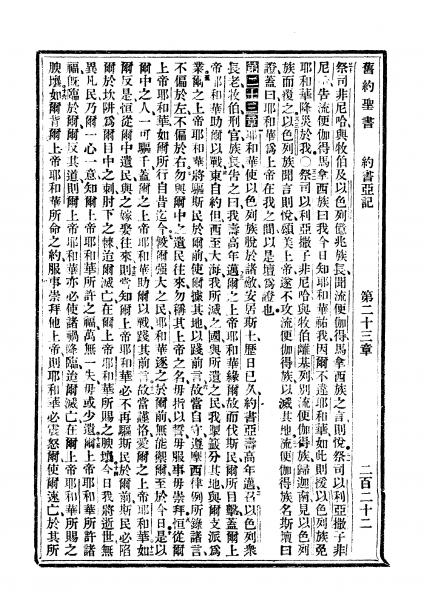 舊約聖書 約書亞記 第二十三章 二百二十二
祭司非尼哈與牧伯及以色列億兆族長聞流便伽得馬拿西族之言則悅祭司以利亞撒子非
尼哈告流便伽得馬拿西族曰我今日知耶和華祐我因爾不違耶和華如此則援以色列族免
耶和華降災於我〇祭司以利亞撒子非尼哈與牧伯離基列別流便伽得族歸迦南見以色列
族而復之以色列族聞言則悅頌美上帝遂不攻流便伽得族以滅其地流便伽得族名斯壇曰
證蓋曰耶和華爲上帝在我之間以是壇爲證也
第二十三章 耶和華使以色列族脫於諸敵安居斯土歷日已久約書亞壽高年邁召以色列衆
長老牧伯刑官族長告之曰我壽高年邁爾之上帝耶和華緣爾故而伐斯民爾所目擊蓋爾上
帝耶和華助爾以戰東自約但西至大海我所滅之國與所遺之民我掣籤分其地與爾支派爲
業爾之上帝耶和華將驅斯民於爾前使爾據其地以踐前言故當自守遵摩西律例所錄諸言
不偏於左不偏於右勿與爾中之遺民往來勿稱其上帝之名毋指以誓毋服事毋崇拜恒從爾
上帝耶和華如爾所行自昔迄今彼爾強大之民耶和華逐之於爾前無能禦爾至於今日是以
爾中之人一可驅千蓋爾之上帝耶和華助爾以戰踐其前言故當謹恪愛爾之上帝耶和華如
爾反是恒從爾中遺民與之嫁娶往來則當知爾上帝耶和華必不再驅斯民於爾前斯民必陷
爾於坎阱爲爾目中之刺肘下之棘迨爾滅亡在爾上帝耶和華所賜之腴壤今日我將逝世無
異凡民乃爾一心一意知爾上帝耶和華所許之福萬無一失毋或少遺爾上帝耶和華所許諸
福旣臨於爾爾反其道則爾上帝耶和華亦必使諸禍降臨迨爾滅亡在爾上帝耶和華所賜之
腴壤如爾背爾上帝耶和華所命之約服事崇拜他上帝則耶和華必震怒爾使爾速亡於其所